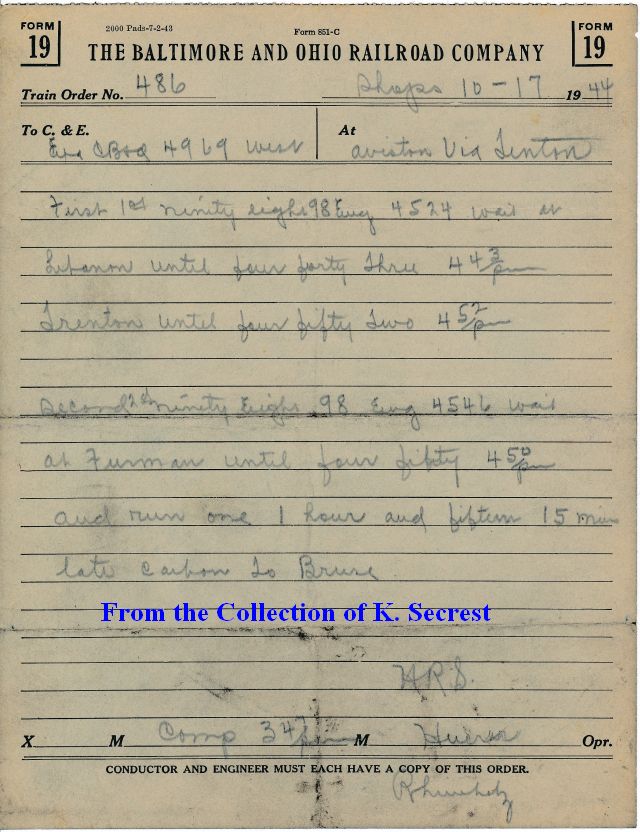 FORM 19
2000 Pads-7-2-43
Form 851-C
FORM 19
THE BALTIMORE AND OHIO RAILROAD COMPANY
Train Order No. 486 Shops 10-17 1944
To C. & E. At
Eng 4969 West aviston Via Trenton
First 1st ninity eight 98 Eng 4524 wait at
Lebanon until four forty three 4 43/pm
Trenton until four fifty two 4 52/pm
Second 2nd ninety Eight 98 Eng 4546 wait
at Furman until four fifty 4 50/pm
and run one 1 hour and fifteen 15 mins
late Carbon to Bruse
From the Collection of K. Secrest
H.R.S.
X M Comp 3 47/pm M Opr.
CONDUCTOR AND ENGINEER MUST EACH HAVE A COPY OF THIS ORDER.